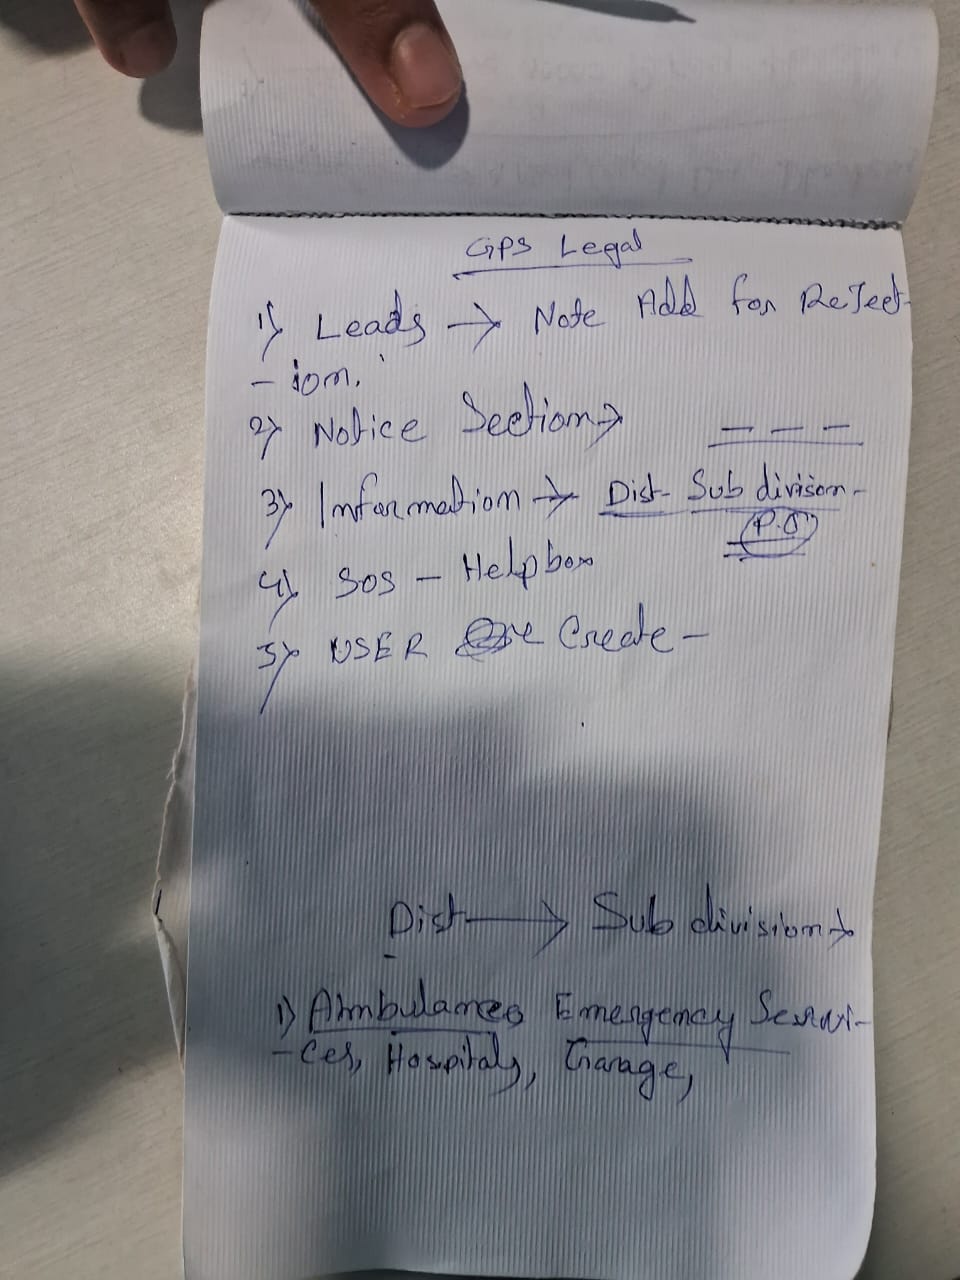 GPS Legal
1) Leads → Note Add for Reject-
- iom.
2) Notice Section → - - -
3) Information → Dist- Sub divison-
P.O
4) SOS - Helpbox
5) USER Create -
Dist → Sub division →
1) Ambulances Emergency Servi-
- ces, Hospitals, Garage,